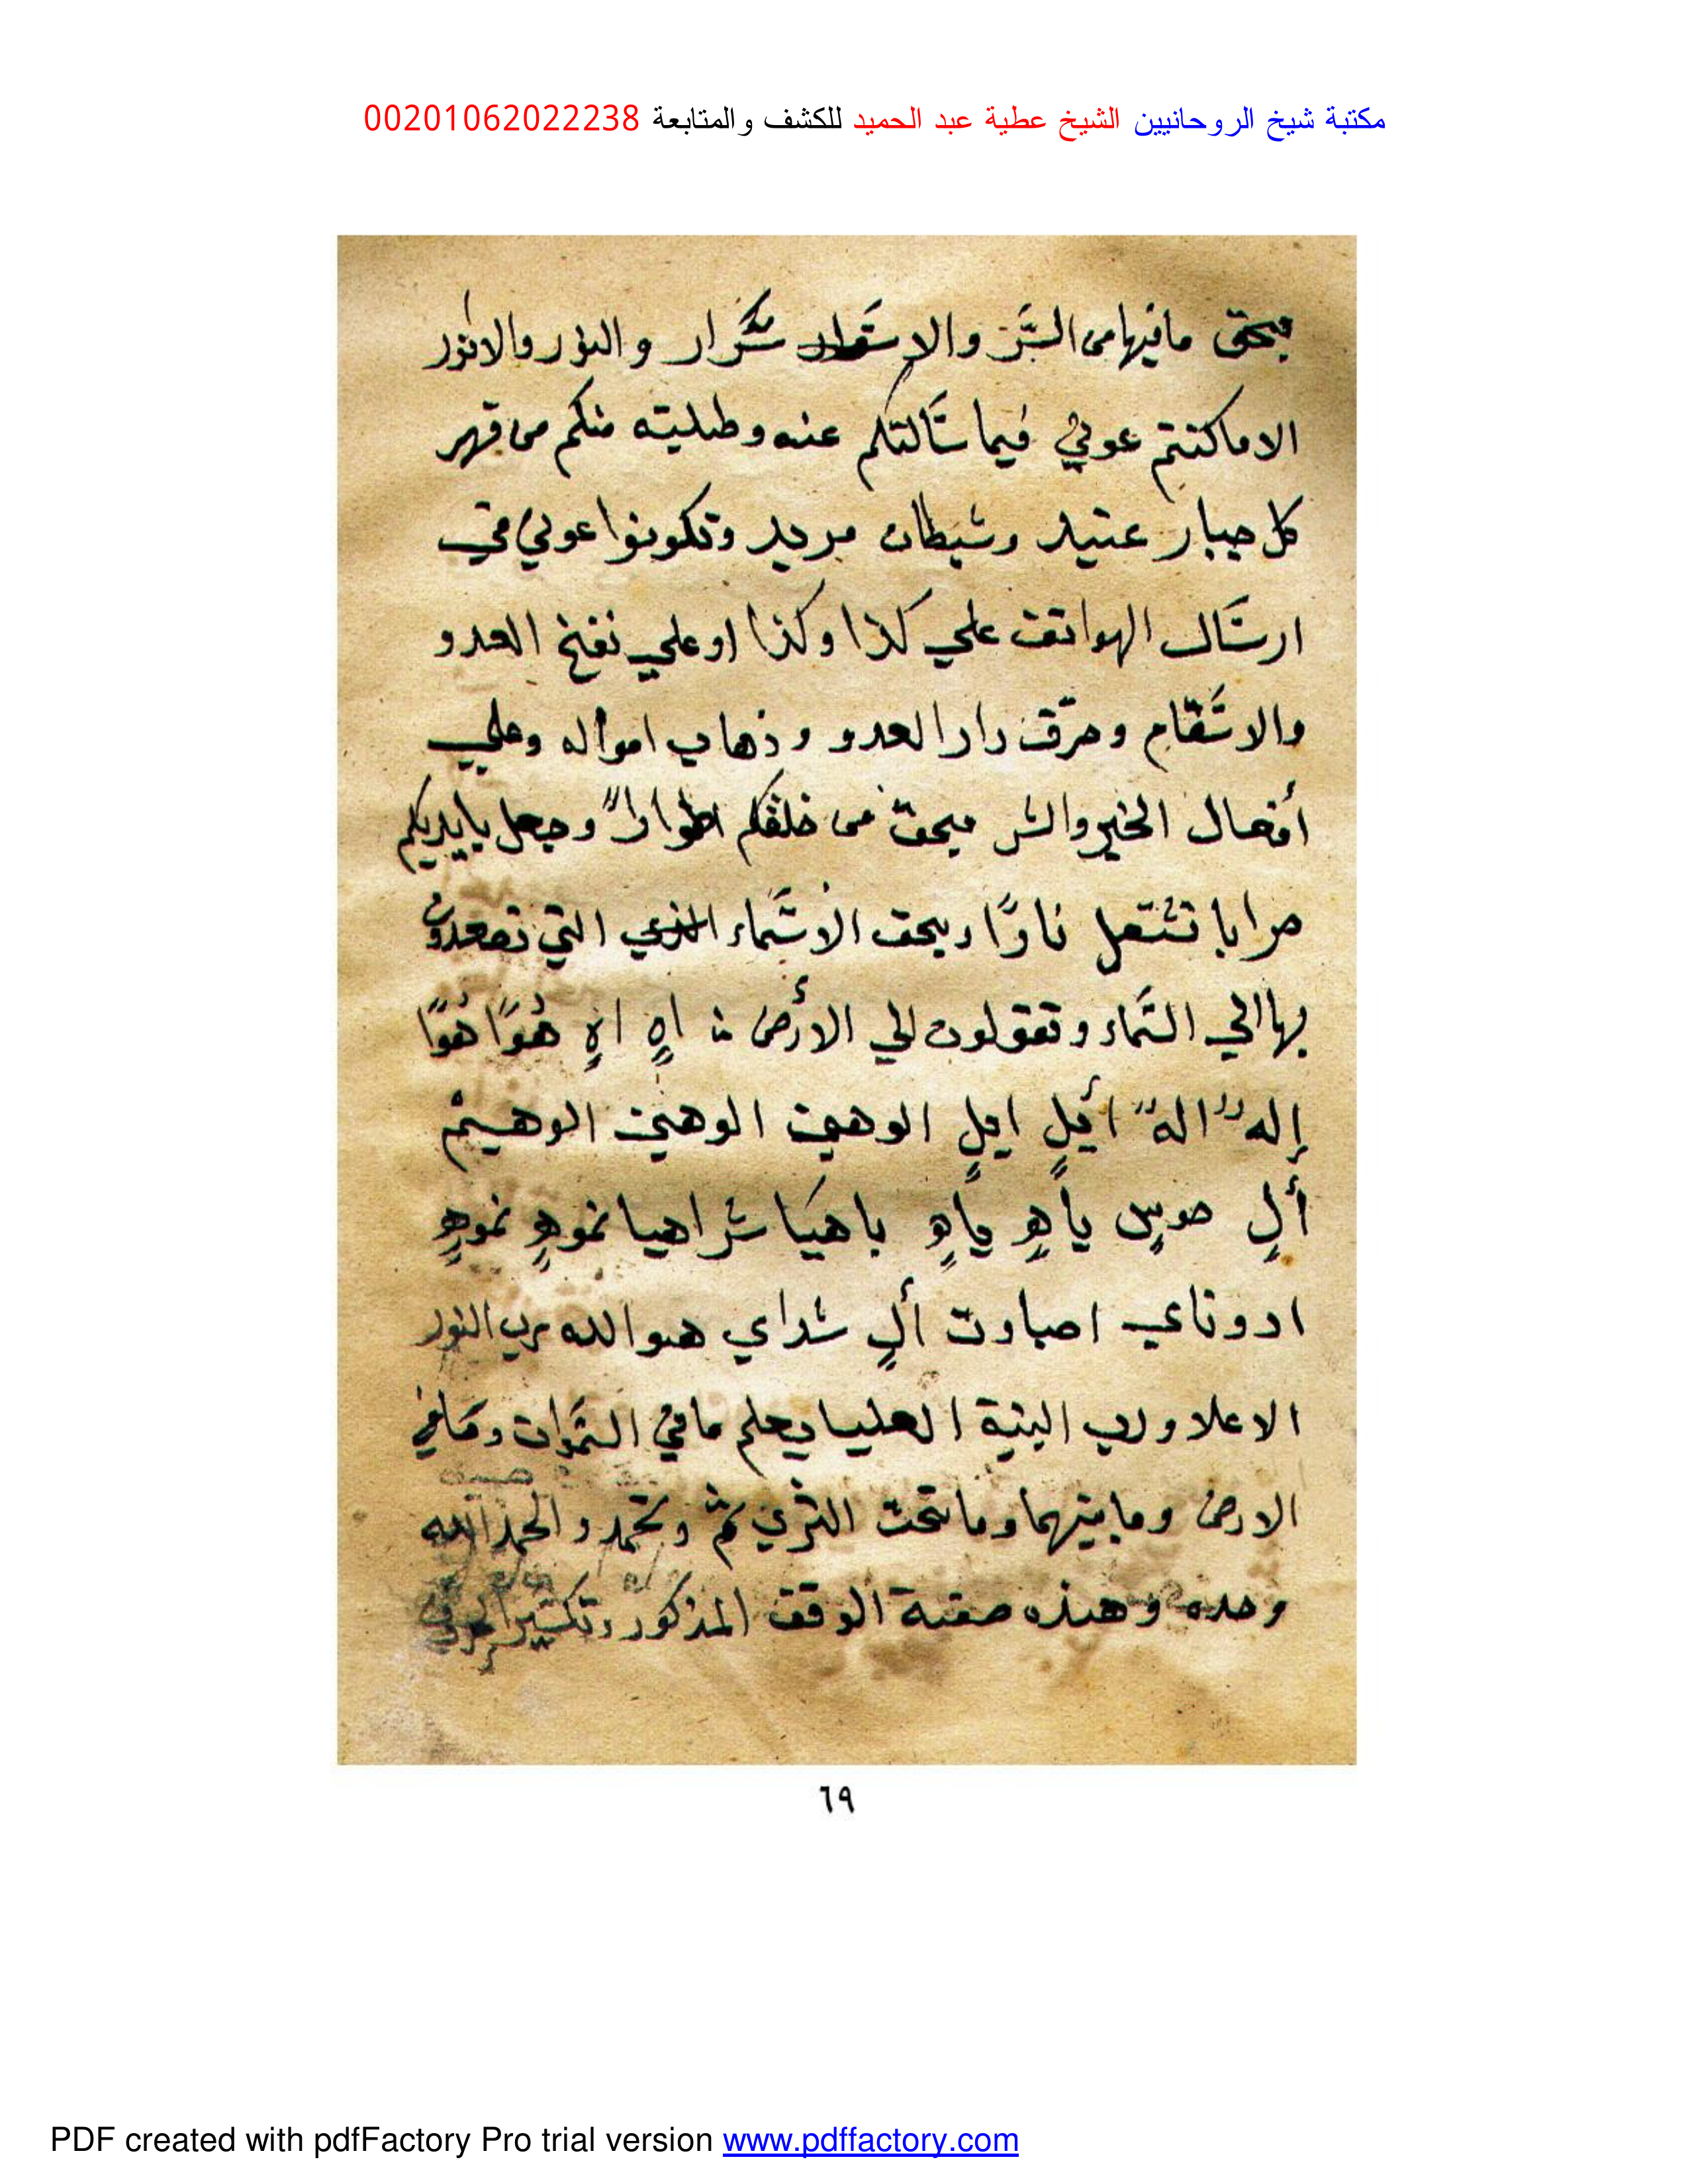 مكتبة شيخ الروحانيين الشيخ عطية عبد الحميد للكشف والمتابعة 00201062022238
بحق ما فيها من السَّر والاسَّرار والنور والانور
الا ما كنتم عوني فيما سَّالتكم عنه وطلبته منكم من قهر
كل جبار عنيد وشيطان مريد وتكونوا عوني في
ارسَّال الهواتف علي كذا وكذا او علي نفخ العدو
والاسَّقام وحرق دار العدو وذهاب امواله وعلي
أفعال الخير والشر بحق من خلقكم اطواراً وجعل بايديكم
حرابا تشتعل نارًا وبحق الاسَّماء التي تصعدون
بها الي السَّماء وتقولون الي الارض اهٍ اهٍ هُوًا هُوًا
إلهٌ الهٌ أيلٍ ايلٍ الوهيم الوهيم الوهيم
ألٍ يأهٍ يأهٍ ياهيَا شراهيا نموهٍ نموهٍ
ادوناي اصباوت ألٍ شداي هو الله رب النور
الاعلا ورب البنية العليا يعلم ما في السَّموات وما في
الارض وما بينهما وما تحت الثري تم وتحمد والحمد لله
وحده وهذه صفة الوفق المذكور وتكسير الحرف
٦٩
PDF created with pdfFactory Pro trial version www.pdffactory.com